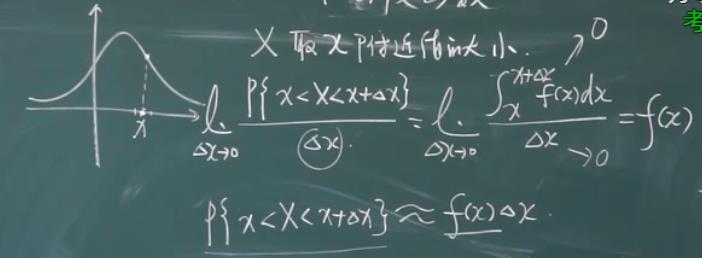 X 取 x 附近值的大小.
lim Δx→0 P{x<X<x+Δx} / Δx = lim Δx→0 ∫ₓ^(x+Δx) f(x)dx / Δx = f(x)
→0
→0
x
P{x<X<x+Δx} ≈ f(x)Δx.